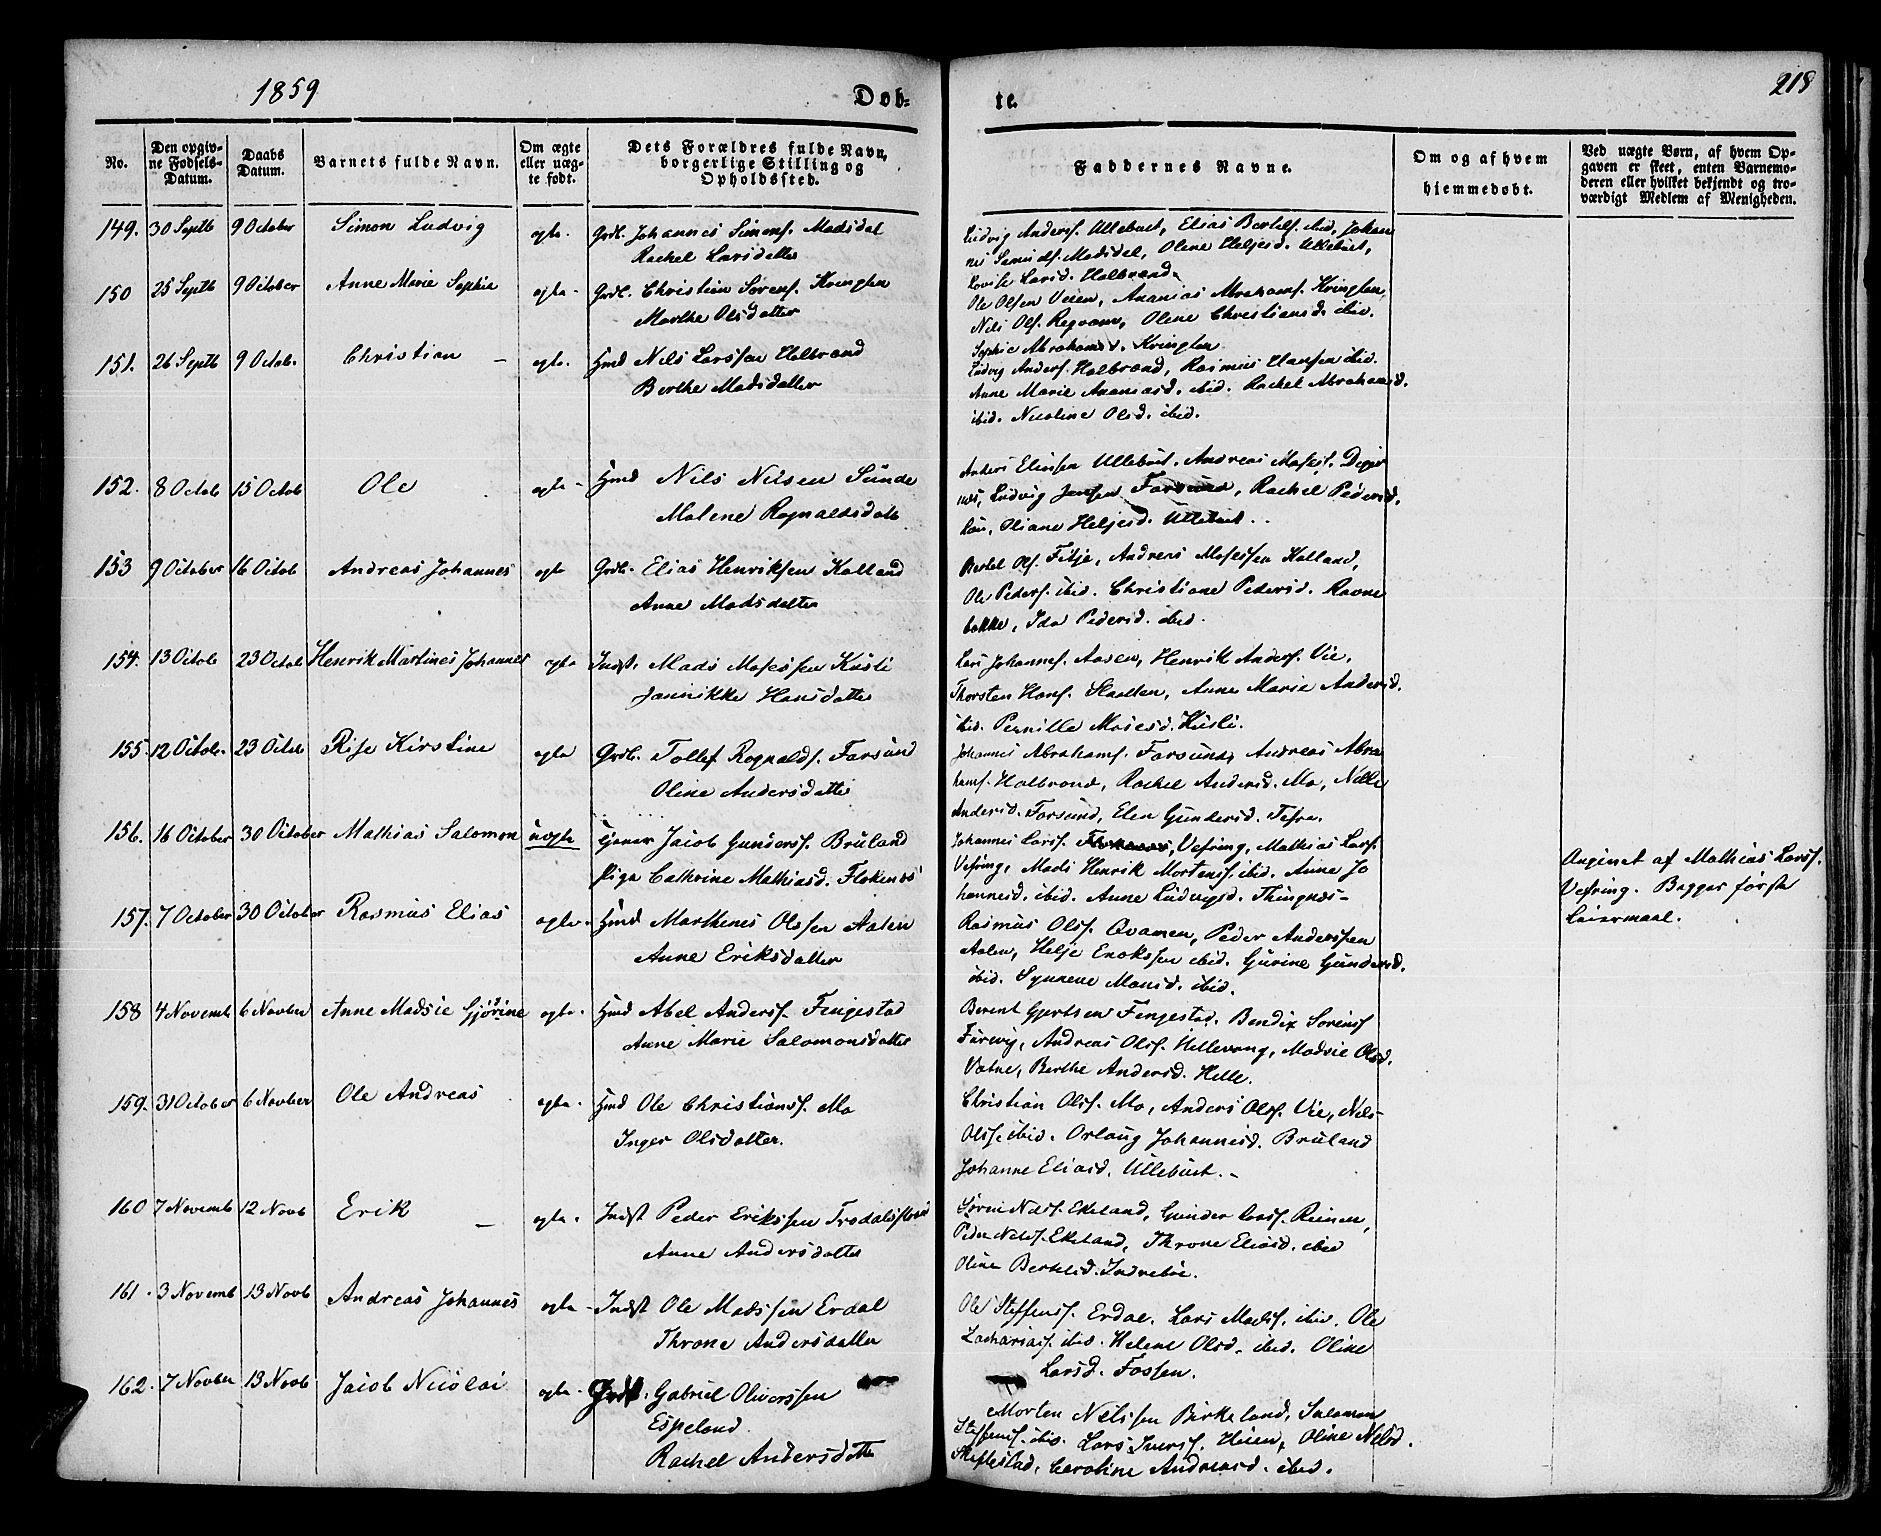 1859
Døb-
te.
218
No.
Den opgiv-
ne Fødsels-
Datum.
Daabs
Datum.
Barnets fulde Navn.
Om ægte
eller uæg-
te født.
Dets Forældres fulde Navn,
borgerlige Stilling og
Opholdssted.
Faddernes Navne.
Om og af hvem
hjemmedøbt.
Ved uægte Børn, af hvem Op-
gaven er skeet, enten Barnemo-
deren eller hvilket bekjendt og tro-
værdigt Medlem af Menigheden.
149. 30 Septb 9 October Simon Ludvig ægte. Grdb. Johannes Simons. Madsdal
Rachel Larsdatter
Ludvig Anders. Ullebust, Elias Bertels. ibid, Johan
nes Madsdal, Oline Heljesd. Ullebust,
Lovise Larsd. Halbrand.
150 25 Septb 9 October Anne Marie Sophie ægte. Grdb. Christian Sørens. Kringlen
Marthe Olsdatter
Ole Olsen Veien, Ananias Abrahams. Kringlen,
Nils Ols. Oline Christiansd. ibid.
Sophie Abrahamsd. Kringlen.
151. 26 Septb 9 Octob. Christian – ægte. Hmd Nils Larssen Halbrand
Berthe Madsdatter
Ludvig Anders. Halbrand, Rasmus Hansen ibid.
Anne Marie Ananiasd. ibid. Rachel Abrahamsd.
ibid. Nicoline Olsd. ibid.
152. 8 Octob 15 Octob Ole ægte Hmd Nils Nilsen Sunde
Malene Rognaldsdatt
Anders Eliasen Ullebust. Andreas Moses. Digger
næs, Ludvig Jensen Farsund, Rachel Pedersd.
Oliane Heljesd. Ullebust..
153 9 October 16 Octob Andreas Johannes ægte Grdb. Elias Henriksen Kalland
Anne Madsdatter
Bertel Ols. Fitje, Andreas Mosessen Kalland,
Ole Peders. ibid. Christiane Pedersd. Ravne
bakke, Ida Pedersd. ibid.
154. 13 Octob 23 Octob Henrik Martines Johannes ægte Indst. Mads Mosessen Kusli
Jannikke Hansdatter
Lars Johannes. Aasen, Henrik Anders. Vie,
Thorsten Hans. Anne Marie Andersd.
ibid. Pernille Mosesd. Kusli.
155. 12 Octob. 23 Octob Rise Kirstine ægte Grdb. Tollef Rognalds. Farsund
Oline Andersdatter
Johannes Abrahams. Farsund, Andreas Abra
hams. Halbrand, Rachel Andersd. Mo, Nille
Andersd. Farsund, Elen Gundersd. Tefre.
156. 16 October 30 October Mathias Salomon uægte tjener Jacob Gunders. Bruland
Pige Cathrine Mathiasd. Flokenes
Johannes Lars. Vefring, Mathias Lars.
Vefring, Mads Henrik Mortens. ibid. Anne Jo
hannesd. ibid. Anne Ludvigsd. Thingnæs –
Angivet af Mathias Lars.
Vefring. Begges første
Leiermaal.
157. 7 October 30 October Rasmus Elias ægte. Hmd Marthenes Olssen Aalen
Anne Eriksdatter
Rasmus Ols. Qvamen, Peder Anderssen
Aalen, Helje Enokssen ibid. Gurine Gundersd.
ibid. Synneve Monsd. ibid.
158 4 Novemb 6 Novber Anne Madsie Gjørine ægte. Hmd Abel Anders. Fengestad
Anne Marie Salomonsdatter
Berent Gjertsen Fengestad. Bendix Sørens
Furevig, Andreas Ols. Hellevang, Madsie Olsd.
Vatne, Berthe Andersd. Helle.
159. 31 October 6 Novber Ole Andreas ægte. Hmd Ole Christians. Mo
Inger Olsdatter.
Christian Ols. Mo, Anders Ols. Vie, Nils
Ols. ibid. Orlaug Johannesd. Bruland
Johanne Eliasd. Ullebust. –
160 7 Novemb 12 Novb Erik – ægte. Indst Peder Erikssen
Anne Andersdatter
Sørine Nils. Ekeland, Gunder Lars. Reinen,
Peder Nils. Ekeland, Throne Eliasd. ibid
Oline Bertelsd. Indrebøe.
161. 3 Novemb 13 Novb Andreas Johannes ægte – Indst Ole Madssen Erdal
Throne Andersdatter
Ole Steffens. Erdal. Lars Mads. ibid. Ole
Zacharias. ibid. Helene Olsd. ibid. Oline
Larsd. Fossen.
162. 7 Novber 13 Novb Jacob Nicolai ægte. Gabriel Oliverssen
Espeland.
Rachel Andersdatte
Morten Nilssen Birkeland, Salamon
Steffens. ibid. Lars Ivers. Heien, Oline Nilsd.
Skiftestad, Caroline Andreasd. ibid.